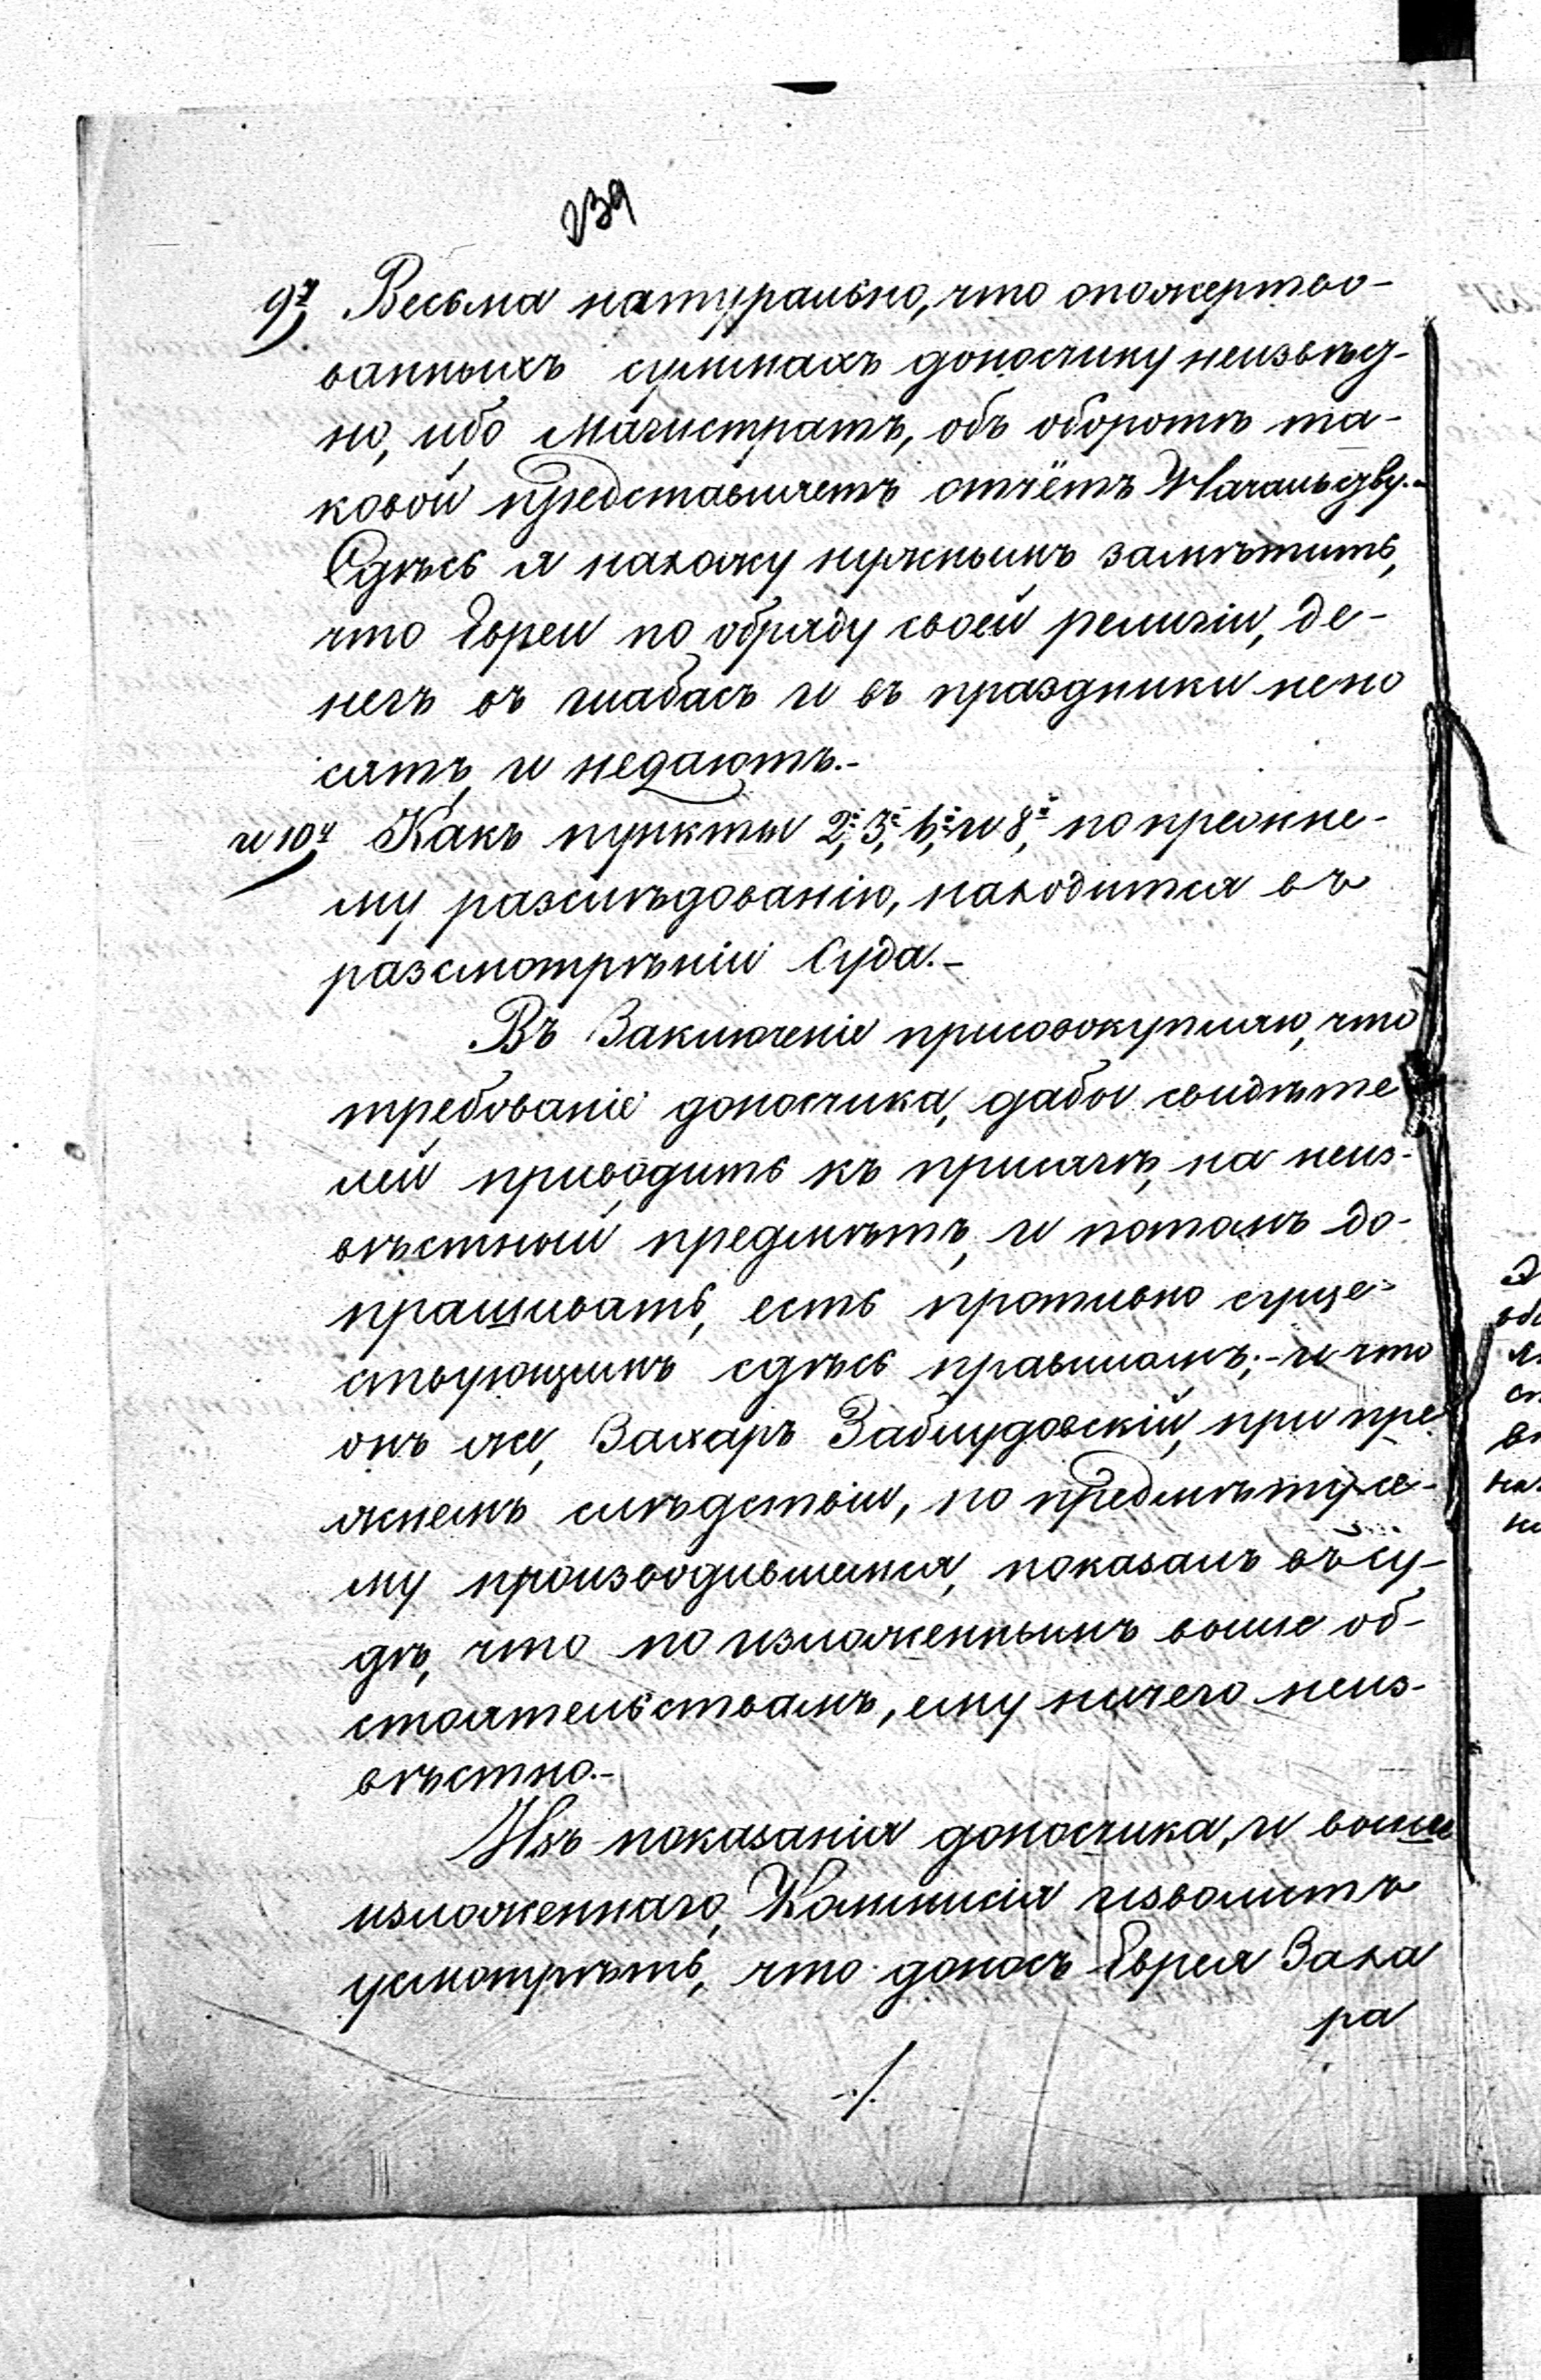 239
9й Весьма натурально, что опожертво-
ванныхъ суммахъ доносчику неизвѣд-
но, ибо Магистратъ, объ оборотѣ та-
ковой представляетъ отчётъ Начальству.-
Сдѣсь я нахожу нужнымъ замѣтить,
что Евреи по обряду своей религіи, де-
негъ въ шабасъ и въ праздники непо
сятъ, и недаютъ.-
и 10й Какъ пункты 2й, 3й, 6й, и 8й, по прежне-
му разслѣдованію, находится въ
разсмотрѣніи Суда.-
Въ Заключеніе присовокупляю, что
требованіе доносчика, дабы свидѣте
лей приводить къ присягѣ, на неиз-
вѣстный предметъ, и потомъ до-
прашивать, есть противно суще-
ствующимъ сдѣсь правиламъ;- и что
онъ же, Захаръ Заблудовскій, при пре
жнемъ слѣдствіи, по предмѣту се-
му производившемся, показалъ въ су-
дѣ, что по изложеннымъ выше об-
стоятельствамъ, ему ничего неиз-
вѣстно.-
Изъ показанія доносчика, и выше
изложеннаго, Коммисія изволитъ
усмотрѣть, что доносъ Еврея Заха
ра
./.